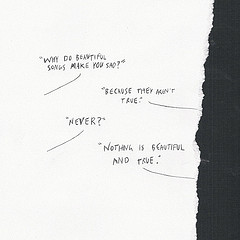 "WHY DO BEAUTIFUL
SONGS MAKE YOU SAD?"
"BECAUSE THEY AREN'T
TRUE."
"NEVER?"
"NOTHING IS BEAUTIFUL
AND TRUE."